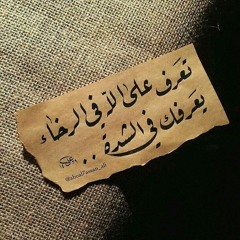 تعرف على الله في الرخاء
يعرفك في الشدة ..